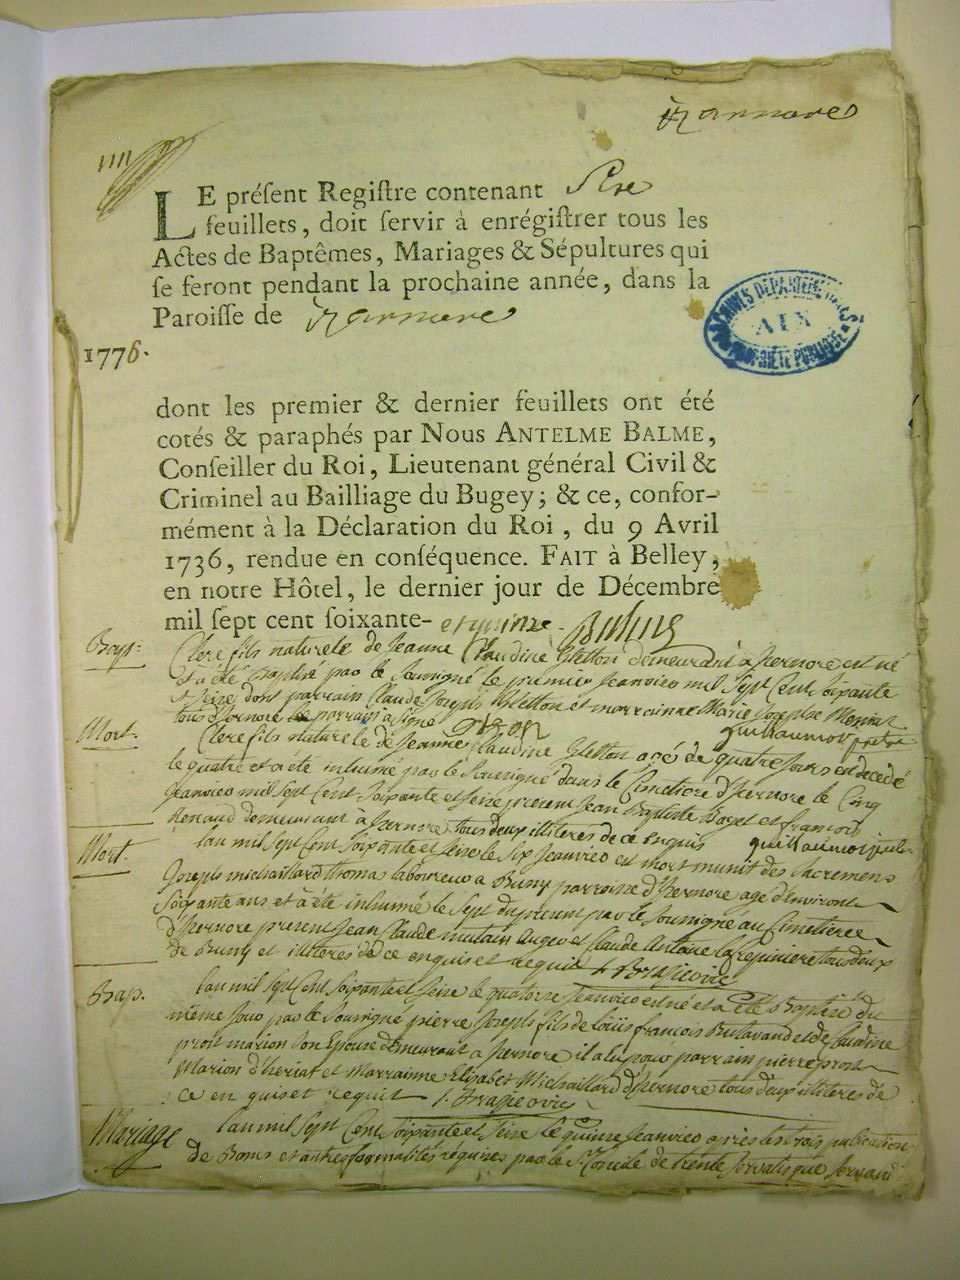 izarnore
LE préſent Regiſtre contenant Sire
feuillets, doit ſervir à enrégiſtrer tous les
Actes de Baptêmes, Mariages & Sépultures qui
ſe feront pendant la prochaine année, dans la
Paroiſſe de izarnore
1776.
ARCHIVES DÉPARTEMENTALES
AIN
PROPRIÉTÉ PUBLIQUE
dont les premier & dernier feuillets ont été
cotés & paraphés par Nous ANTELME BALME,
Conſeiller du Roi, Lieutenant général Civil &
Criminel au Bailliage du Bugey; & ce, confor-
mément à la Déclaration du Roi, du 9 Avril
1736, rendue en conſéquence. FAIT à Belley,
en notre Hôtel, le dernier jour de Décembre
mil ſept cent ſoixante- et quinze
Bap:
Clere fils naturele de Jeanne Claudine Gletton demeurant a Izernore est né
et a été Baptisé par le Sousigné le premier Jeanvier mil Sept Cent Soixante
et Seize dont parrain Claude Joseph Gletton et marrainne Marie Josephe
tous d'Izernore le parrain a signé
Mort.
Clere fils naturele de Jeanne Claudine Gletton agé de quatre Jours est decedé
le quatre et a été inhumé par le Sousigné dans le Cimetiere d'Izernore le Cinq
Jeanvier mil Sept Cent Soixante et Seize présent Jean Baptiste et francois
Renaud demeurant à Izernore tous deux illiteres de ce enquis
Mort.
Lan mil Sept Cent Soixante et Seize le Six Jeanvier est mort munit des Sacremens
Joseph michaillard thomas laboureur a Bussy parroisse d'Izernore agé d'environt
Soixante ans et a été inhumé le Sept du present par le Sousigné au Cimetiere
d'Izernore present Jean Claude et Claude Antoine tous deux
de Bussy et illiteres de ce enquis et requis
Bap.
Lan mil Sept Cent Soixante et Seize le quatorze Jeanvier est né et a été Baptisé du
même Jour par le Sousigné pierre Joseph fils de Loüis francois et de Claudine
prost marion Son Epouse demeurant a Izernore il a eu pour parrain pierre prost
Marion d'heriat et Marrainne Elizabet Michaillard d'Izernore tous deux illiteres de
ce enquis et requit
Mariage
Lan mil Sept Cent Soixante et Seize le quinze Jeanvier après les trois publication
de Bans et autres formalités requises par le St Concile de trente